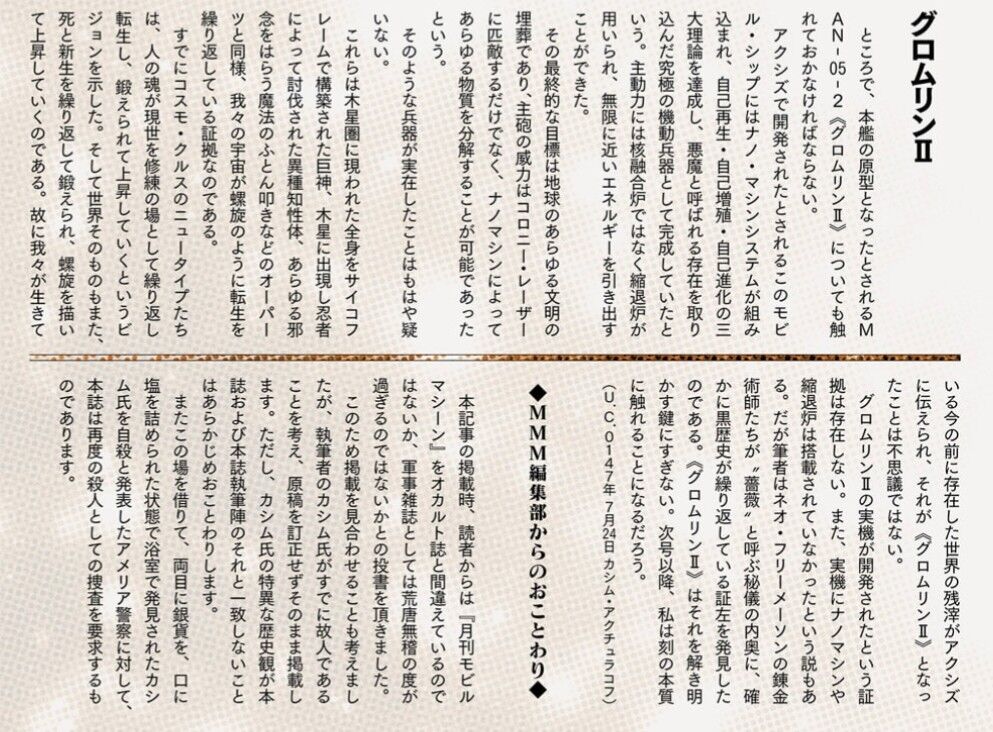 グロムリンⅡ
ところで、本艦の原型となったとされるM
AN-05-2《グロムリンⅡ》についても触
れておかなければならない。
アクシズで開発されたとされるこのモビ
ル・シップにはナノ・マシンシステムが組み
込まれ、自己再生・自己増殖・自己進化の三
大理論を達成し、悪魔と呼ばれる存在を取り
込んだ究極の機動兵器として完成していたと
いう。主動力には核融合炉ではなく縮退炉が
用いられ、無限に近いエネルギーを引き出す
ことができた。
その最終的な目標は地球のあらゆる文明の
埋葬であり、主砲の威力はコロニー・レーザー
に匹敵するだけでなく、ナノマシンによって
あらゆる物質を分解することが可能であった
という。
そのような兵器が実在したことはもはや疑
いない。
これらは木星圏に現われた全身をサイコフ
レームで構築された巨神、木星に出現し忍者
によって討伐された異種知性体、あらゆる邪
念をはらう魔法のふとん叩きなどのオーパー
ツと同様、我々の宇宙が螺旋のように転生を
繰り返している証拠なのである。
すでにコスモ・クルスのニュータイプたち
は、人の魂が現世を修練の場として繰り返し
転生し、鍛えられて上昇していくというビ
ジョンを示した。そして世界そのものもまた、
死と新生を繰り返して鍛えられ、螺旋を描い
て上昇していくのである。故に我々が生きて
いる今の前に存在した世界の残滓がアクシズ
に伝えられ、それが《グロムリンⅡ》となっ
たことは不思議ではない。
グロムリンⅡの実機が開発されたという証
拠は存在しない。また、実機にナノマシンや
縮退炉は搭載されていなかったという説もあ
る。だが筆者はネオ・フリーメーソンの錬金
術師たちが〝薔薇〟と呼ぶ秘儀の内奥に、確
かに黒歴史が繰り返している証左を発見した
のである。《グロムリンⅡ》はそれを解き明
かす鍵にすぎない。次号以降、私は刻の本質
に触れることになるだろう。
(U.C.0147年7月24日 カシム・アクチュラコフ)
◆MMM編集部からのおことわり◆
本記事の掲載時、読者からは『月刊モビル
マシーン』をオカルト誌と間違えているので
はないか、軍事雑誌としては荒唐無稽の度が
過ぎるのではないかとの投書を頂きました。
このため掲載を見合わせることも考えまし
たが、執筆者のカシム氏がすでに故人である
ことを考え、原稿を訂正せずそのまま掲載し
ます。ただし、カシム氏の特異な歴史観が本
誌および本誌執筆陣のそれと一致しないこと
はあらかじめおことわりします。
またこの場を借りて、両目に銀貨を、口に
塩を詰められた状態で浴室で発見されたカシ
ム氏を自殺と発表したアメリア警察に対して、
本誌は再度の殺人としての捜査を要求するも
のであります。